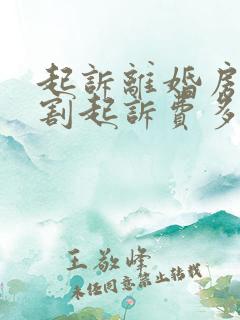 起訴離婚房
割起訴費多
王敬峰
未經同意禁止轉載